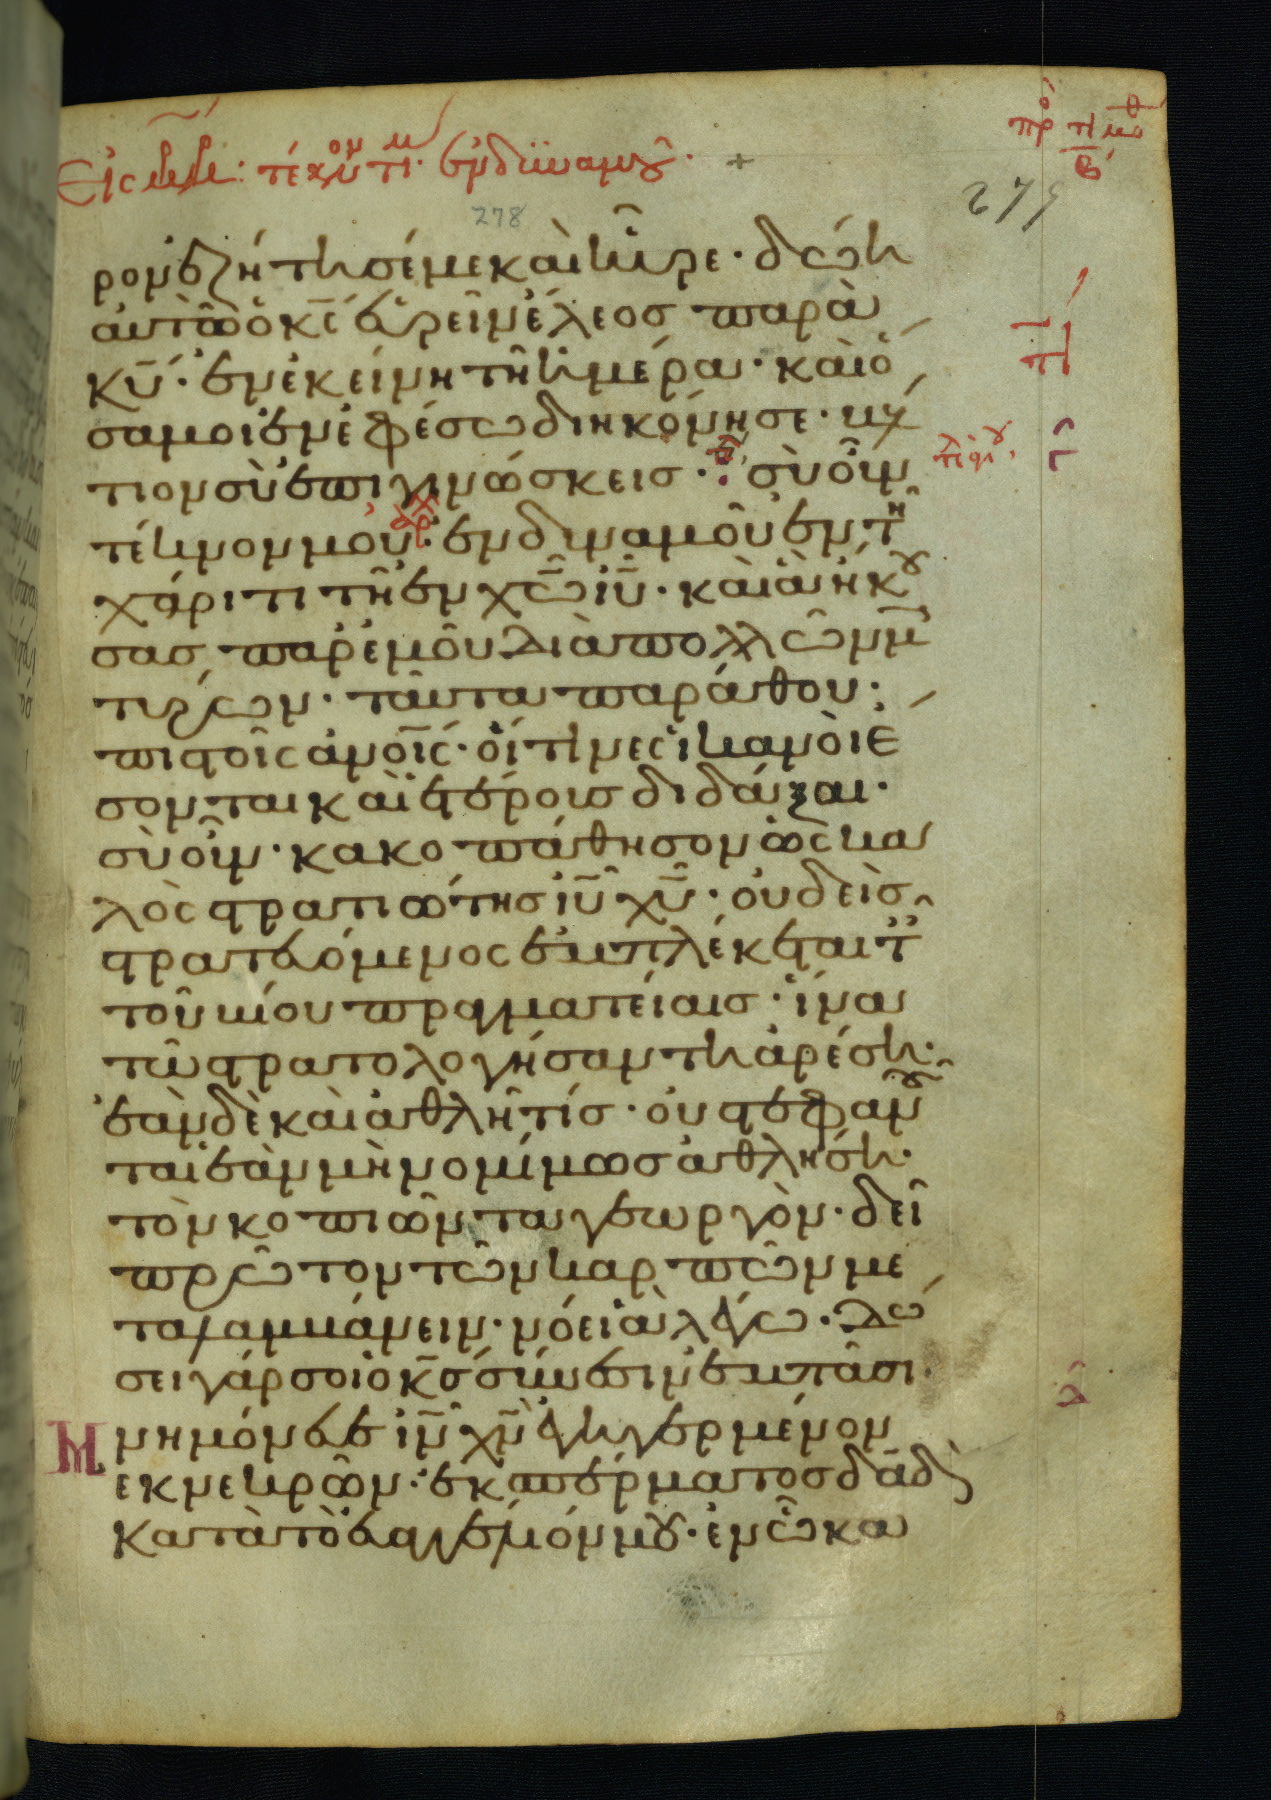 278
279
ρον ἐζήτησέ με καὶ εὗρε· δώη
αὐτῶ ὁ κ̅ς εὑρεῖν ἔλεος παρὰ
κ̅υ· ἐν ἐκείνη τῆ ἡμέρα· καὶ ὅ
σα μοι ἐν ἐφέσω διηκόνησε· βελ
τιον σὺ ἐπιγινώσκεις· σὺ οὖν
τέκνον μου· ἐνδυναμοῦ ἐν τῆ
χάριτι τῆ ἐν χ̅ω ι̅υ· καὶ ἃ ἤκου
σας παρ' ἐμοῦ διὰ πολλῶν μ
τύρων· ταῦτα παράθου·
πιστοῖς ἀνο̅ις· οἵτινες ἱκανοὶ ἔ
σονται καὶ ἑτέροις διδάξαι·
σὺ οὖν· κακοπάθησον ὡς κα
λὸς στρατιώτης ι̅υ χ̅υ· οὐδεὶς
στρατευόμενος ἐμπλέκεται τ
τοῦ βίου πραγματείαις· ἵνα
τῶ στρατολογήσαντι ἀρέση·
ἐὰν δὲ καὶ ἀθλῆ τίς· οὐ στεφανοῦ
ται ἐὰν μὴ νομίμως ἀθλήση·
τὸν κοπιῶντα γεωργὸν· δεῖ
πρῶτον τῶν καρπῶν με
ταλαμβάνειν· νόει ἃ λέγω· δώ
σει γάρ σοι ὁ κ̅ς σύνεσιν ἐν πᾶσι·
Μνημόνευε ι̅ν χ̅ν ἐγηγερμένον
ἐκ νεκρῶν· ἐκ σπέρματος δα̅δ
κατὰ τὸ εὐαγγέλιόν μου· ἐν ὧ κα